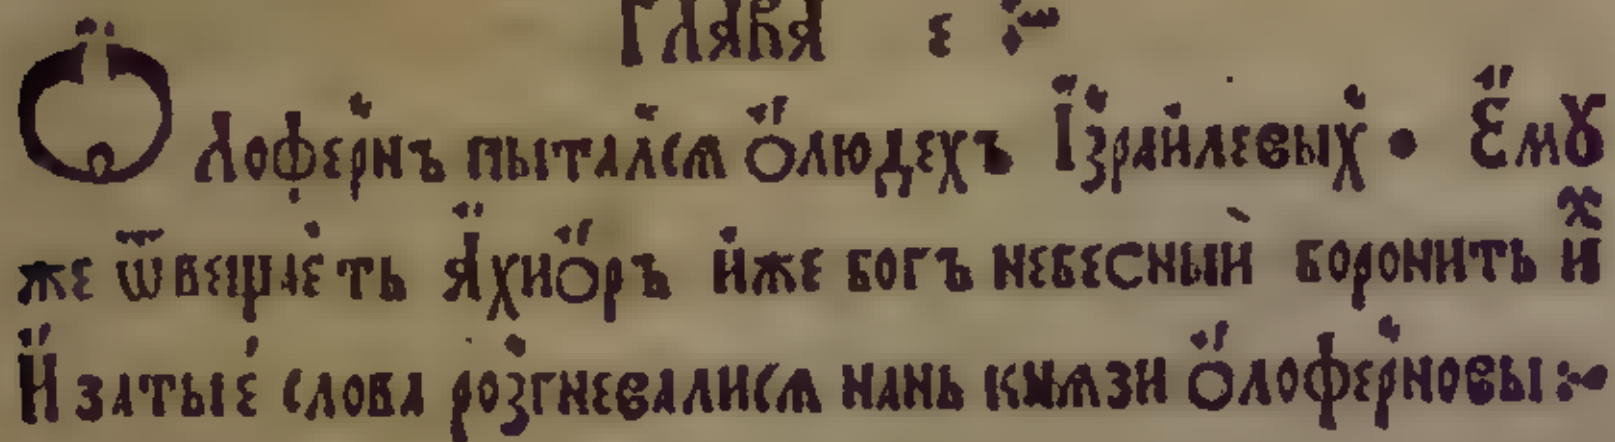 ГЛАВА Є
Олофернъ пыталсѧ олюдехъ Ізраилевых • Емꙋ
же ѿвещаеть Ахиоръ иже богъ небесныи боронить иⷯ
И затые слова розгневалисѧ нань кнѧзи Олоферновы